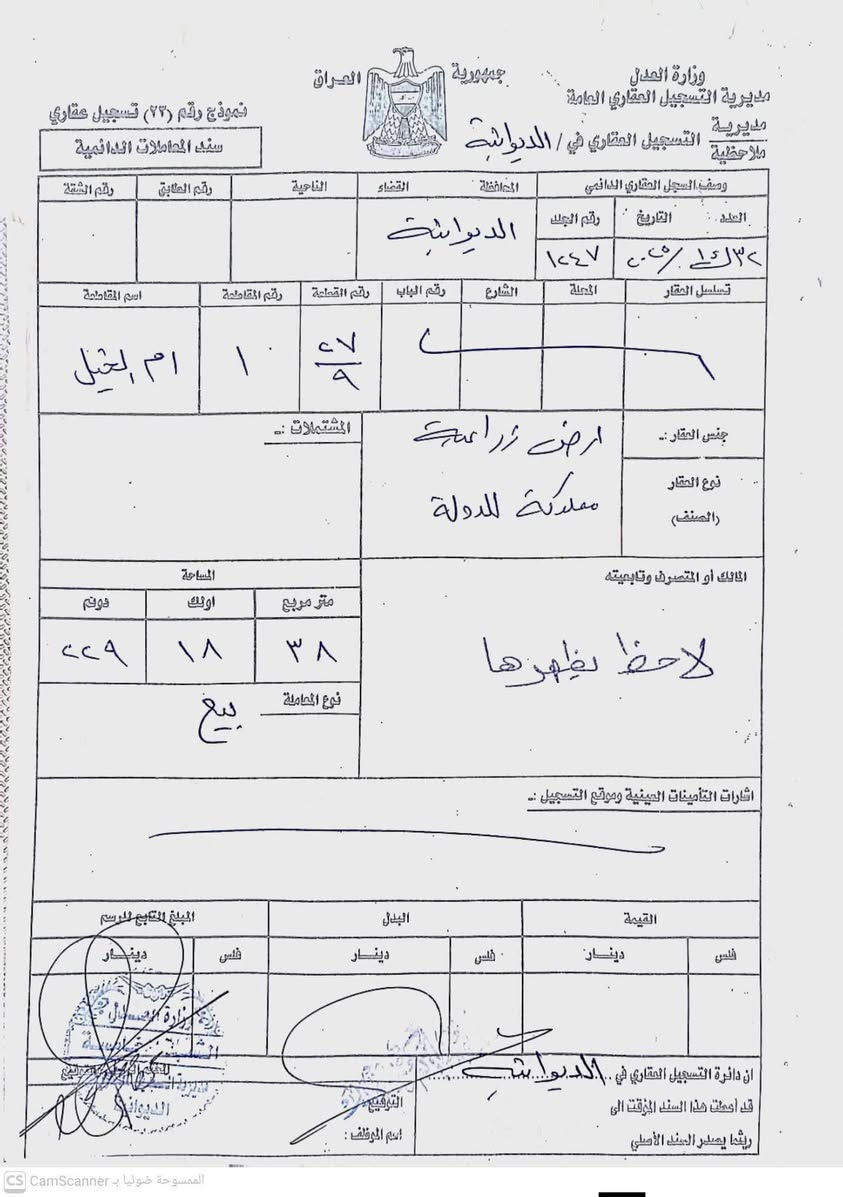 جمهورية العراق
وزارة العدل
مديرية التسجيل العقاري العامة
مديرية
ملاحظية
التسجيل العقاري في / الديوانية
نموذج رقم (٢٣) تسجيل عقاري
سند المعاملات الدائمية
وصف السجل العقاري الدائمي
المحافظة القضاء الناحية رقم الطابق رقم الشقة
العدد التاريخ رقم الجلد
الديوانية
٣٢ ك١ /٢٠٢٥ ١٢٤٧
تسلسل العقار المحلة الشارع رقم الباب رقم القطعة رقم المقاطعة اسم المقاطعة
٢٧
٩
١٠
ام الخيل
جنس العقار :.
ارض زراعية
المشتملات :.
نوع العقار
(الصنف)
مملوكة للدولة
المالك أو المتصرف وتابعيته
لاحظ يظهرها
المساحة
متر مربع اولك دونم
٣٨ ١٨ ٢٢٩
نوع المعاملة
بيع
اشارات التأمينات العينية وموقع التسجيل :.
القيمة البدل المبلغ التابع للرسم
فلس دينار فلس دينار فلس دينار
ان دائرة التسجيل العقاري في الديوانية
قد أعطت هذا السند المؤقت الى
ريثما يصدر السند الأصلي
التوقيع
اسم الموظف :
وزارة العدل
الديوانية
CS CamScanner الممسوحة ضوئيا بـ